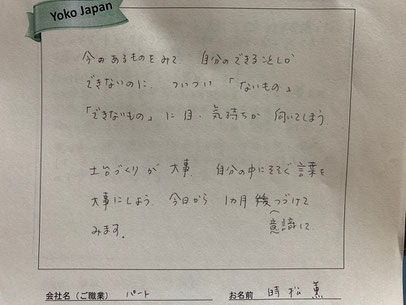 Yoko Japan
今のあるものをみて 自分のできることしか
できないのに ついつい 「ないもの」
「できないもの」に目、気持ちが 向いてしまう
土台づくりが 大事. 自分の中にそそぐ言葉を
大事にしよう 今日から 1ヵ月 つづけて
みます. 意識して
会社名(ご職業) パート お名前 時松 薫